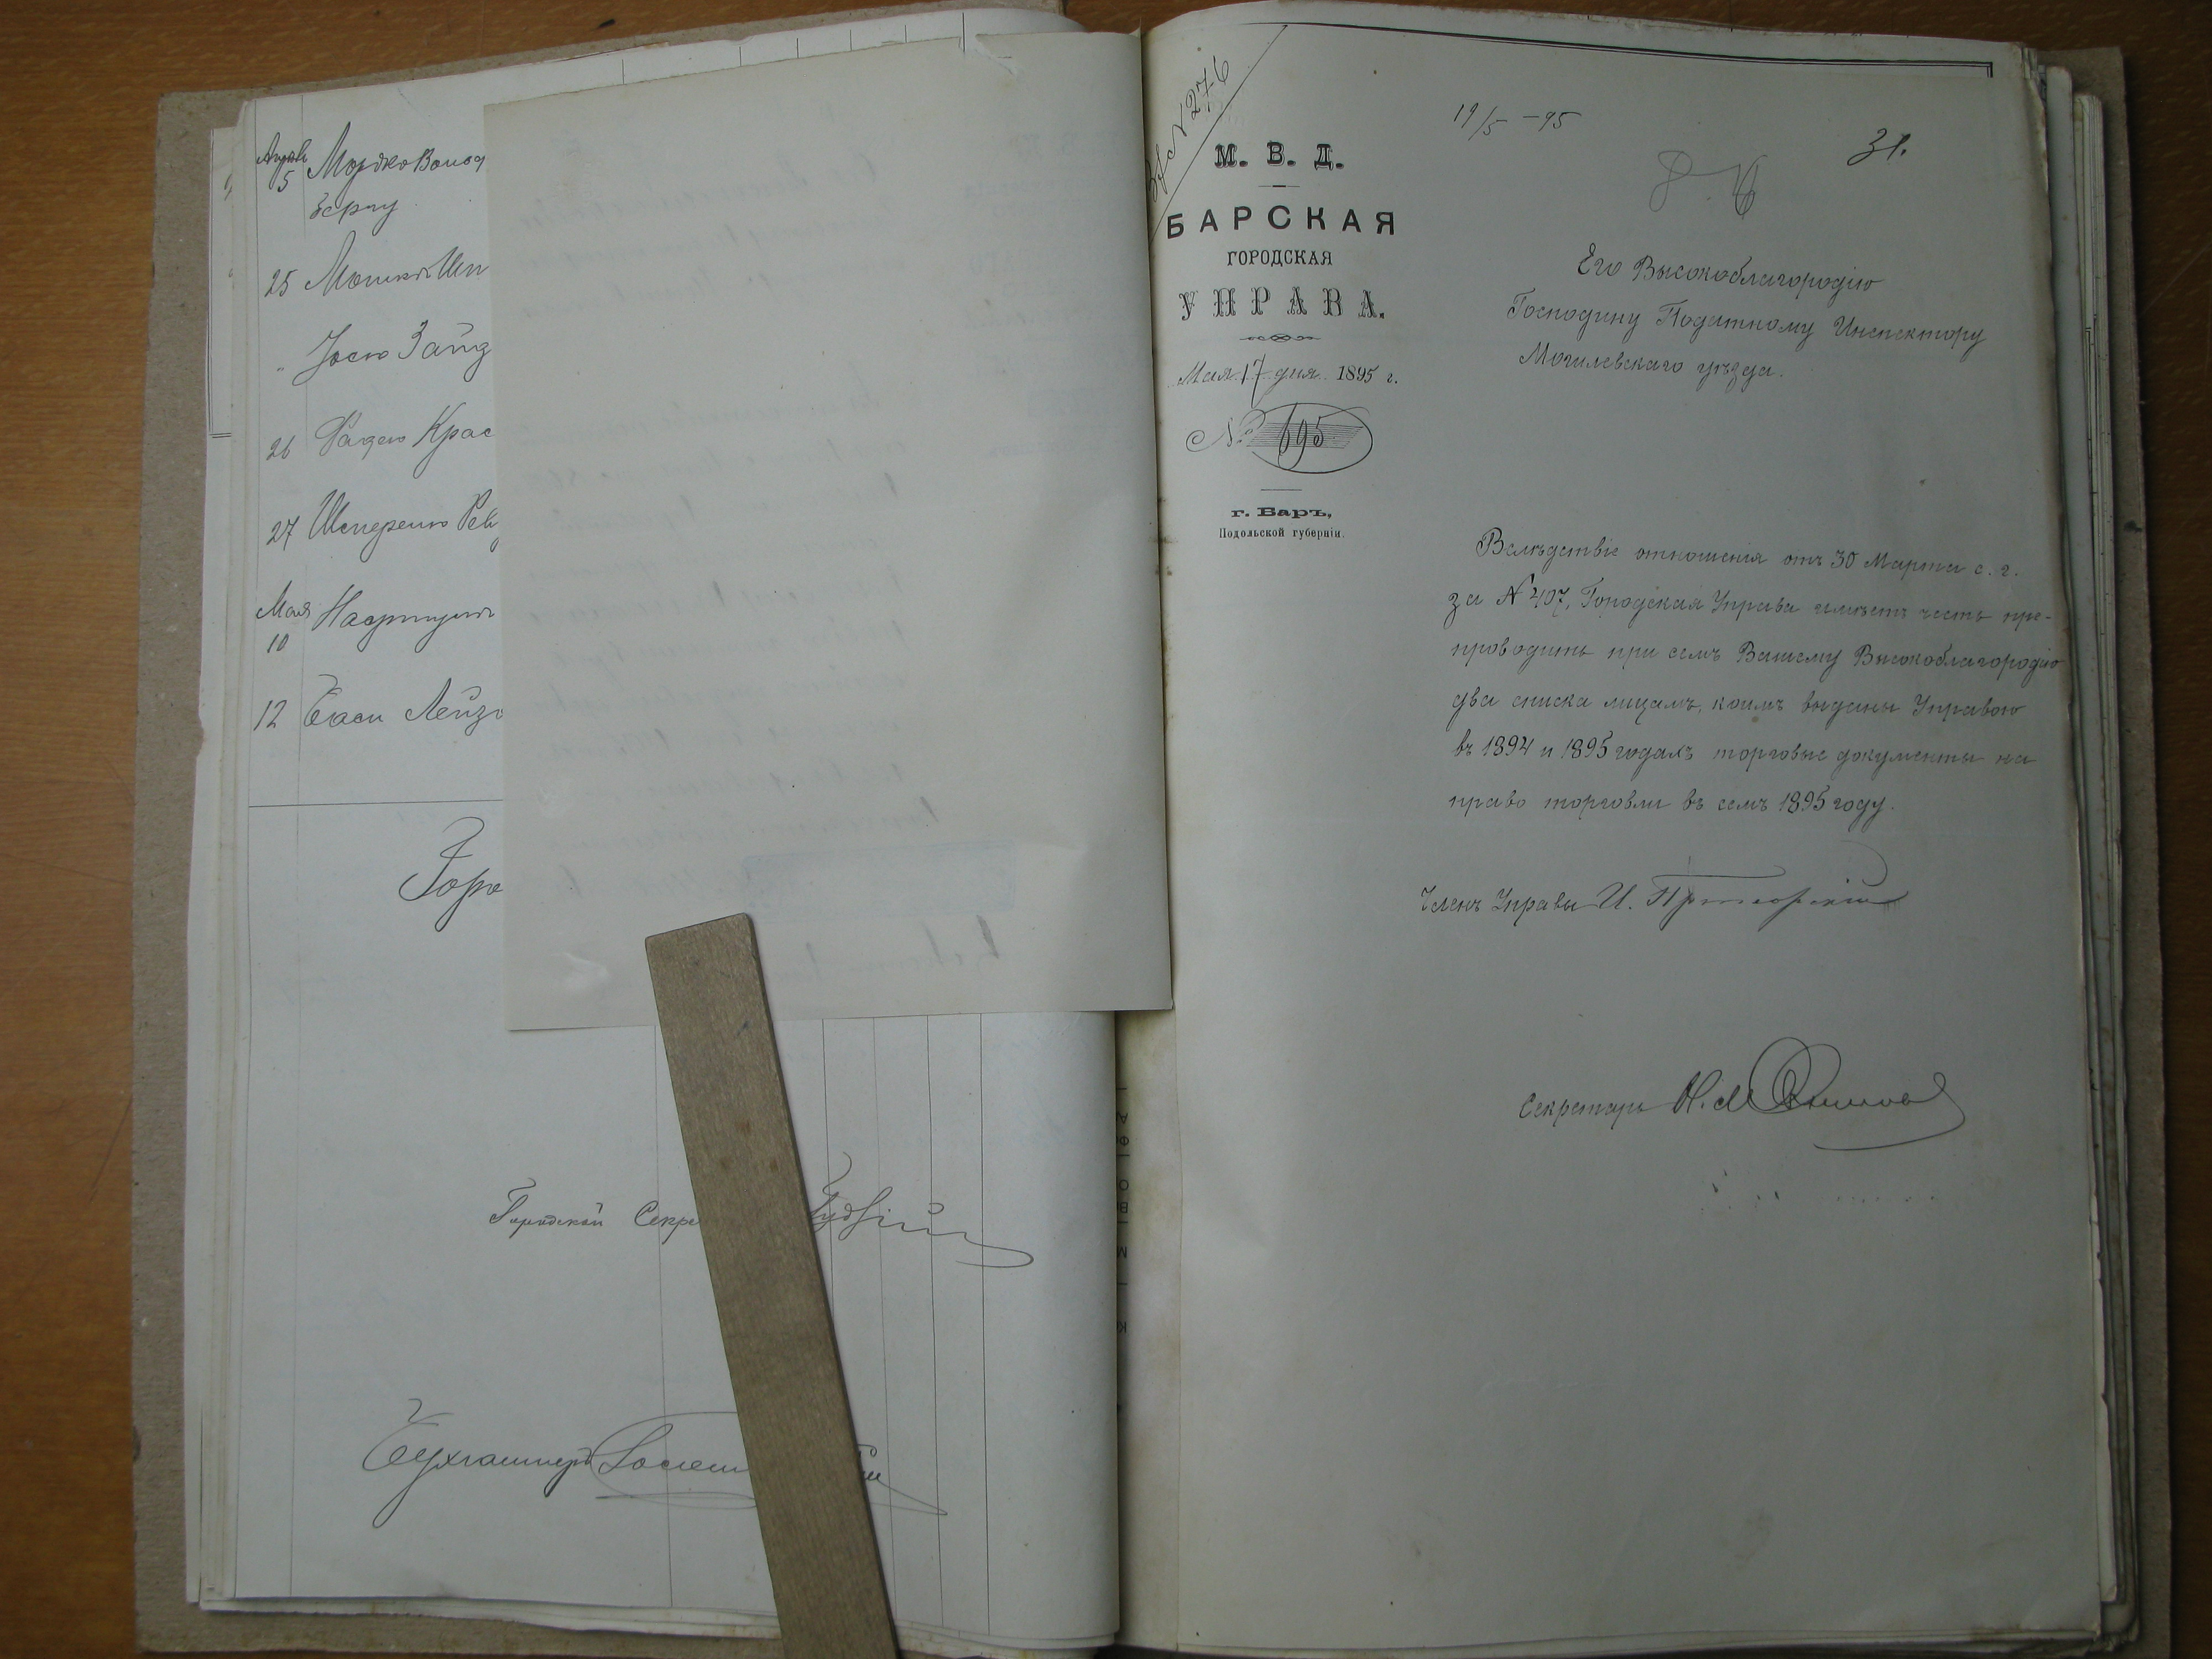 Апрѣль
5
Мордко Вольф
Зерну
25 Мошко Шп
" Іосю Зайд
26 Фадею Крас
27
Мая
10
12 Баси Лейзо
Горо
Городской Секре
Бухгалтеръ
№ 276
М. В. Д.
БАРСКАЯ
ГОРОДСКАЯ
УПРАВА.
Мая 17 дня 1895 г.
№ 695
г. Баръ,
Подольской губерніи.
19/5 – 95
31.
Его Высокоблагородію
Господину Податному Инспектору
Могилевскаго уѣзда.
Вслѣдствіе отношенія отъ 30 Марта с. г.
за № 407, Городская Управа имѣетъ честь пре-
проводить при семъ Вашему Высокоблагородію
два списка лицамъ, коимъ выданы Управою
въ 1894 и 1895 годахъ торговые документы на
право торговли въ семъ 1895 году.
Членъ Управы И.
Секретарь Н.